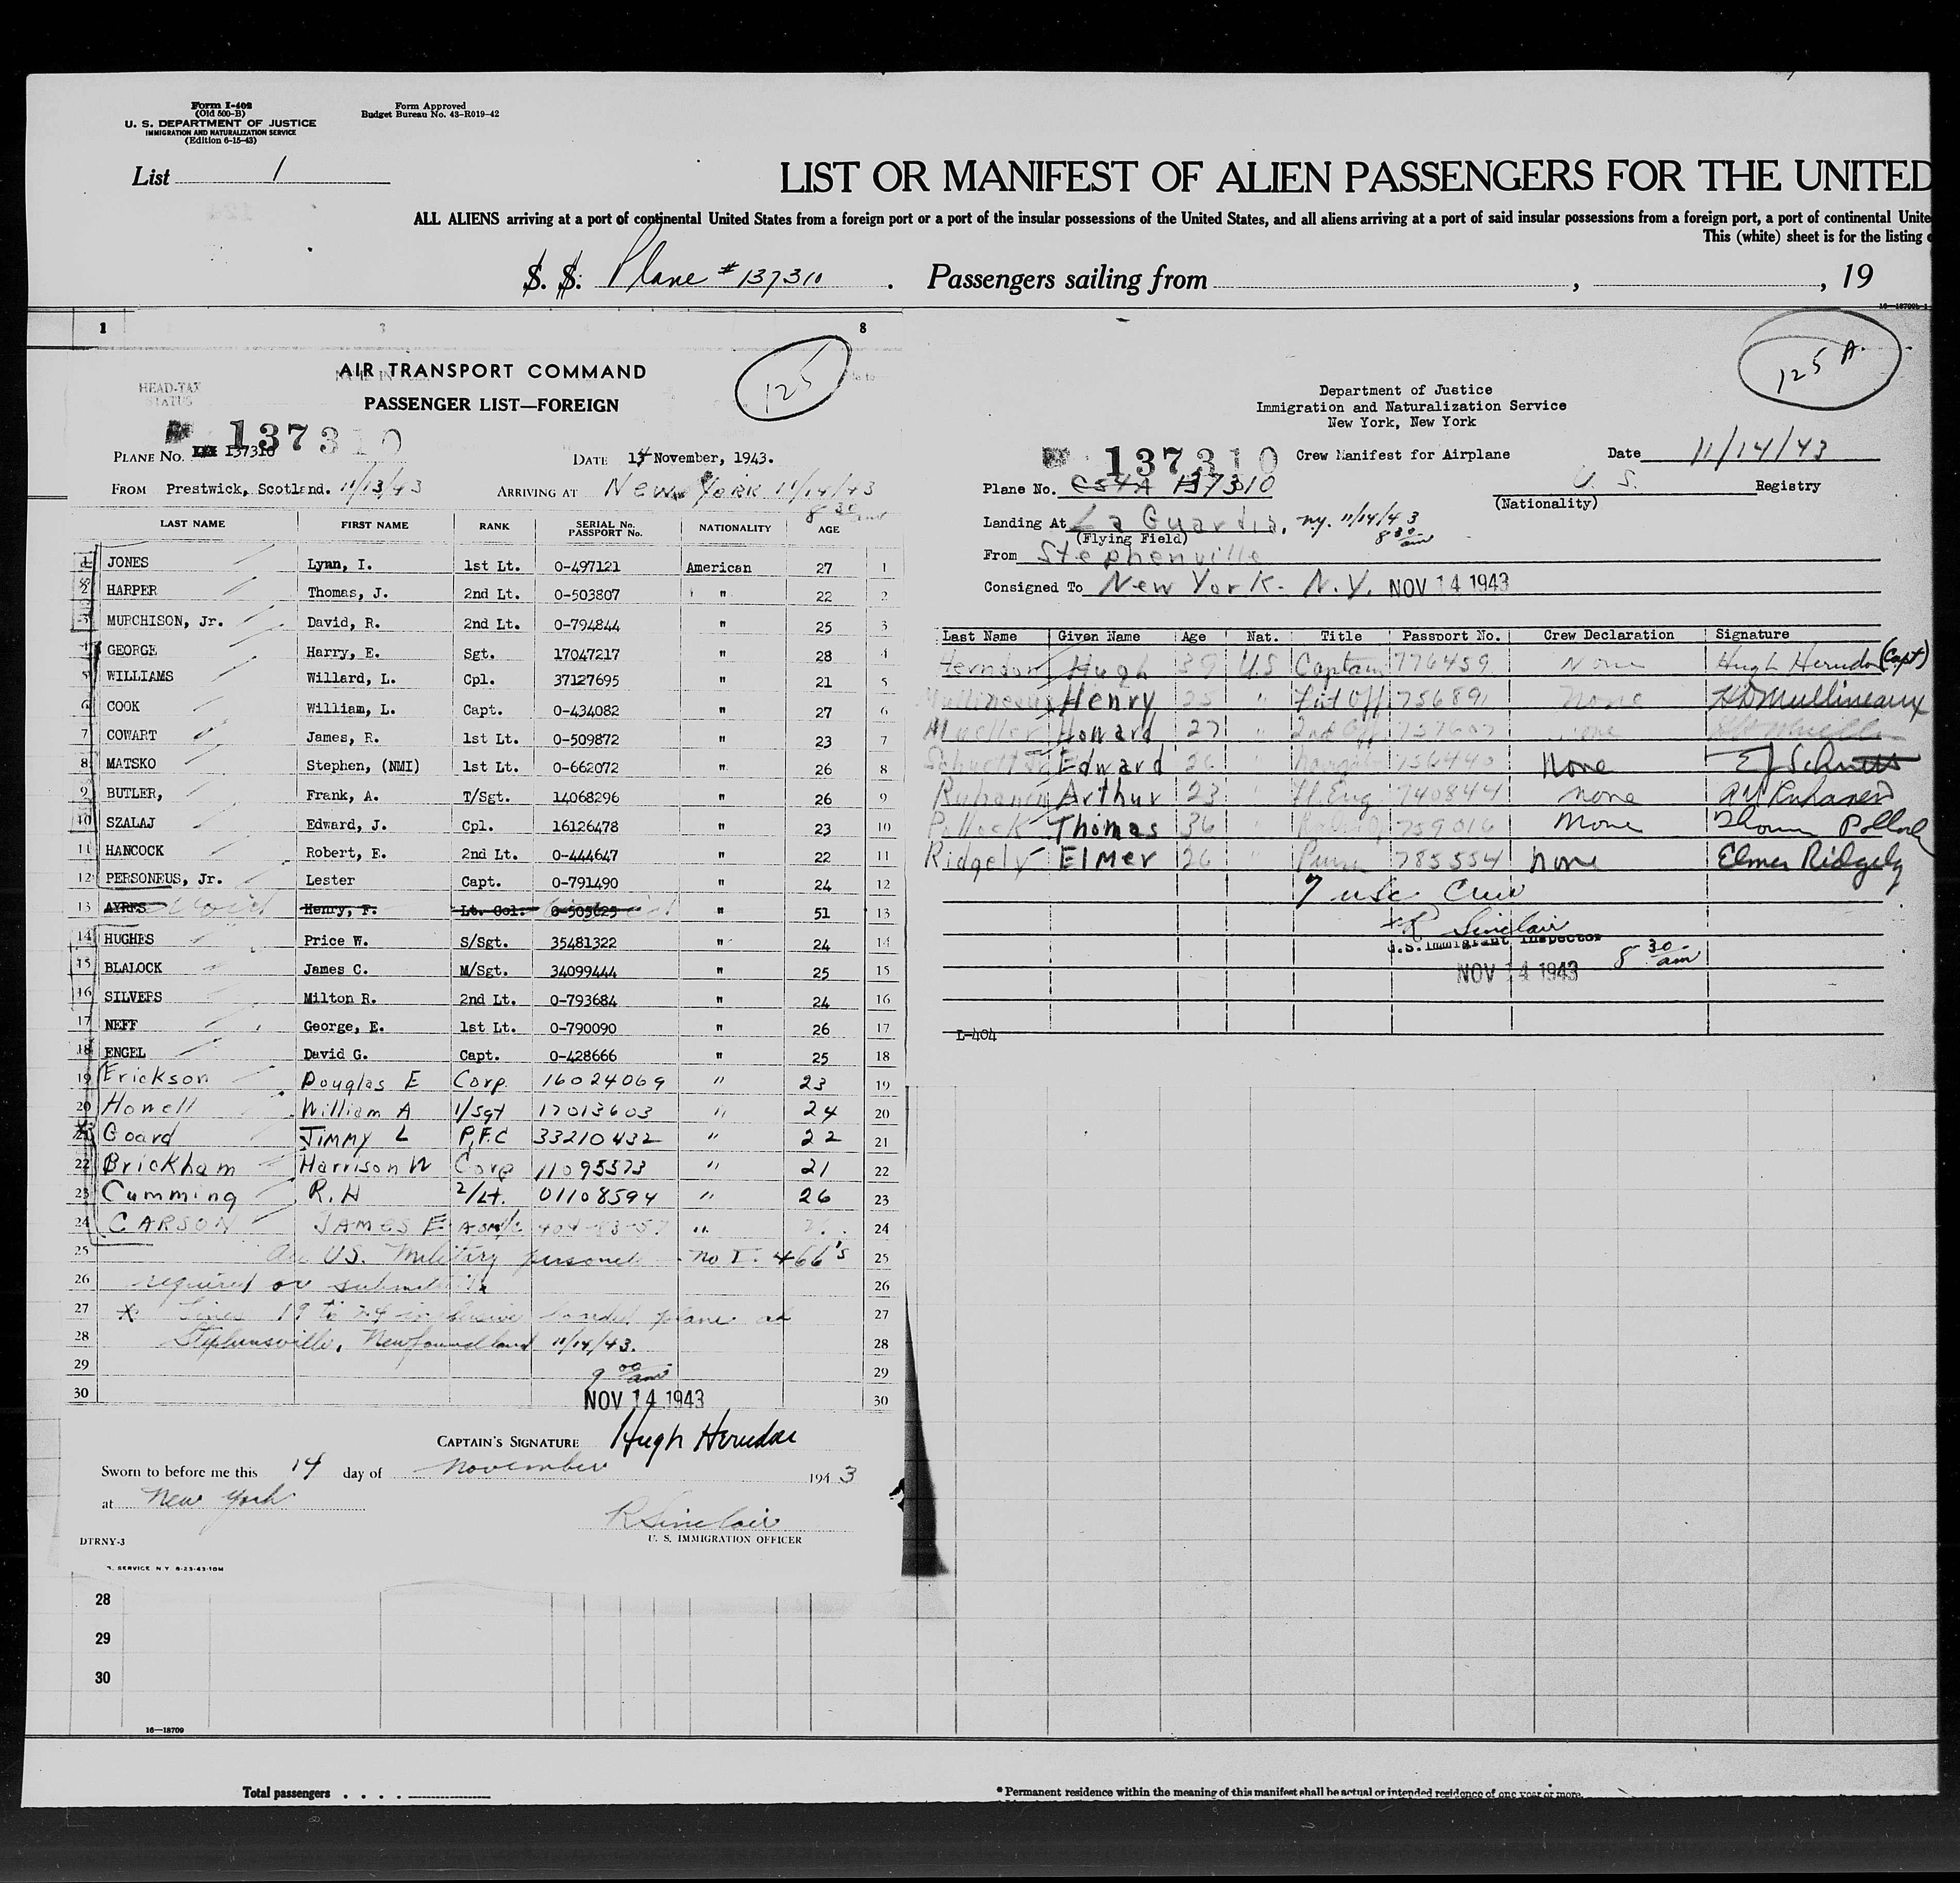 Form I-402
(Old 500-B)
U. S. DEPARTMENT OF JUSTICE
IMMIGRATION AND NATURALIZATION SERVICE
(Edition 6-15-43)
Form Approved
Budget Bureau No. 43-R019-42
List 1
LIST OR MANIFEST OF ALIEN PASSENGERS FOR THE UNITED
ALL ALIENS arriving at a port of continental United States from a foreign port or a port of the insular possessions of the United States, and all aliens arriving at a port of said insular possessions from a foreign port, a port of continental Unite
This (white) sheet is for the listing
S. S. Plane # 137310 . Passengers sailing from , , 19
16—18709b-1
1 3 8
AIR TRANSPORT COMMAND
125
HEAD-TAX
STATUS
PASSENGER LIST—FOREIGN
137310
PLANE No. 137310
DATE 14 November, 1943.
FROM Prestwick, Scotland. 11/13/43 ARRIVING AT New York 11/14/43
8 30 am
LAST NAME FIRST NAME RANK SERIAL No. PASSPORT No. NATIONALITY AGE
1 JONES Lynn, I. 1st Lt. 0-497121 American 27 1
2 HARPER Thomas, J. 2nd Lt. 0-503807 " 22 2
3 MURCHISON, Jr. David, R. 2nd Lt. 0-794844 " 25 3
4 GEORGE Harry, E. Sgt. 17047217 " 28 4
5 WILLIAMS Willard, L. Cpl. 37127695 " 21 5
6 COOK William, L. Capt. 0-434082 " 27 6
7 COWART James, R. 1st Lt. 0-509872 " 23 7
8 MATSKO Stephen, (NMI) 1st Lt. 0-662072 " 26 8
9 BUTLER, Frank, A. T/Sgt. 14068296 " 26 9
10 SZALAJ Edward, J. Cpl. 16126478 " 23 10
11 HANCOCK Robert, E. 2nd Lt. 0-444647 " 22 11
12 PERSONEUS, Jr. Lester Capt. 0-791490 " 24 12
13 AYRES Void Henry, F. Lt. Col. 0-505625 " 51 13
14 HUGHES Price W. S/Sgt. 35481322 " 24 14
15 BLALOCK James C. M/Sgt. 34099444 " 25 15
16 SILVERS Milton R. 2nd Lt. 0-793684 " 24 16
17 NEFF George, E. 1st Lt. 0-790090 " 26 17
18 ENGEL David G. Capt. 0-428666 " 25 18
19 Erickson Douglas E Corp. 16024069 " 23 19
20 Howell William A 1/Sgt 17013603 " 24 20
21 Goard Jimmy L P.F.C 33210432 " 22 21
22 Brickham Harrison W Corp 11095573 " 21 22
23 Cumming R. H 2/Lt. 01108594 " 26 23
24 CARSON JAMES E 404-83-57 " 24
25 All US. Military personel - no I. 466's 25
26 required or submitted 26
27 * Lines 19 to 24 inclusive boarded plane at 27
28 Stephensville, Newfoundland 11/14/43. 28
29 9 00 am 29
30 NOV 14 1943 30
CAPTAIN'S SIGNATURE Hugh Herndon
Sworn to before me this 14 day of November 1943
at New York
R Sinclair
U. S. IMMIGRATION OFFICER
DTRNY-3
SERVICE N.Y. 8-23-43-10M
28
29
30
16—18709
Total passengers . . . .
125 A.
Department of Justice
Immigration and Naturalization Service
New York, New York
137310 Crew Manifest for Airplane Date 11/14/43
Plane No. C54A 137310 U. S. Registry
(Nationality)
Landing At La Guardia, ny. 11/14/43
(Flying Field) 8 30 am
From Stephenville
Consigned To New York - N.Y. NOV 14 1943
Last Name Given Name Age Nat. Title Passport No. Crew Declaration Signature
Herndon Hugh 39 U.S Captain 776459 None Hugh Herndon (Capt)
Mullineaux Henry 25 " Fst Off 756891 None HD Mullineaux
Mueller Howard 27 " 2nd Off None
Edward 26 " None
Ruhanen Arthur 23 " Fl. Eng 740844 None
Pollock Thomas 36 " 759016 None Thomas Pollock
Ridgely Elmer 26 " 785554 None Elmer Ridgely
7 usc Crew
R Sinclair
U.S. Immigrant Inspector
NOV 14 1943 8 30 am
L-404
* Permanent residence within the meaning of this manifest shall be actual or intended residence of one year or more.